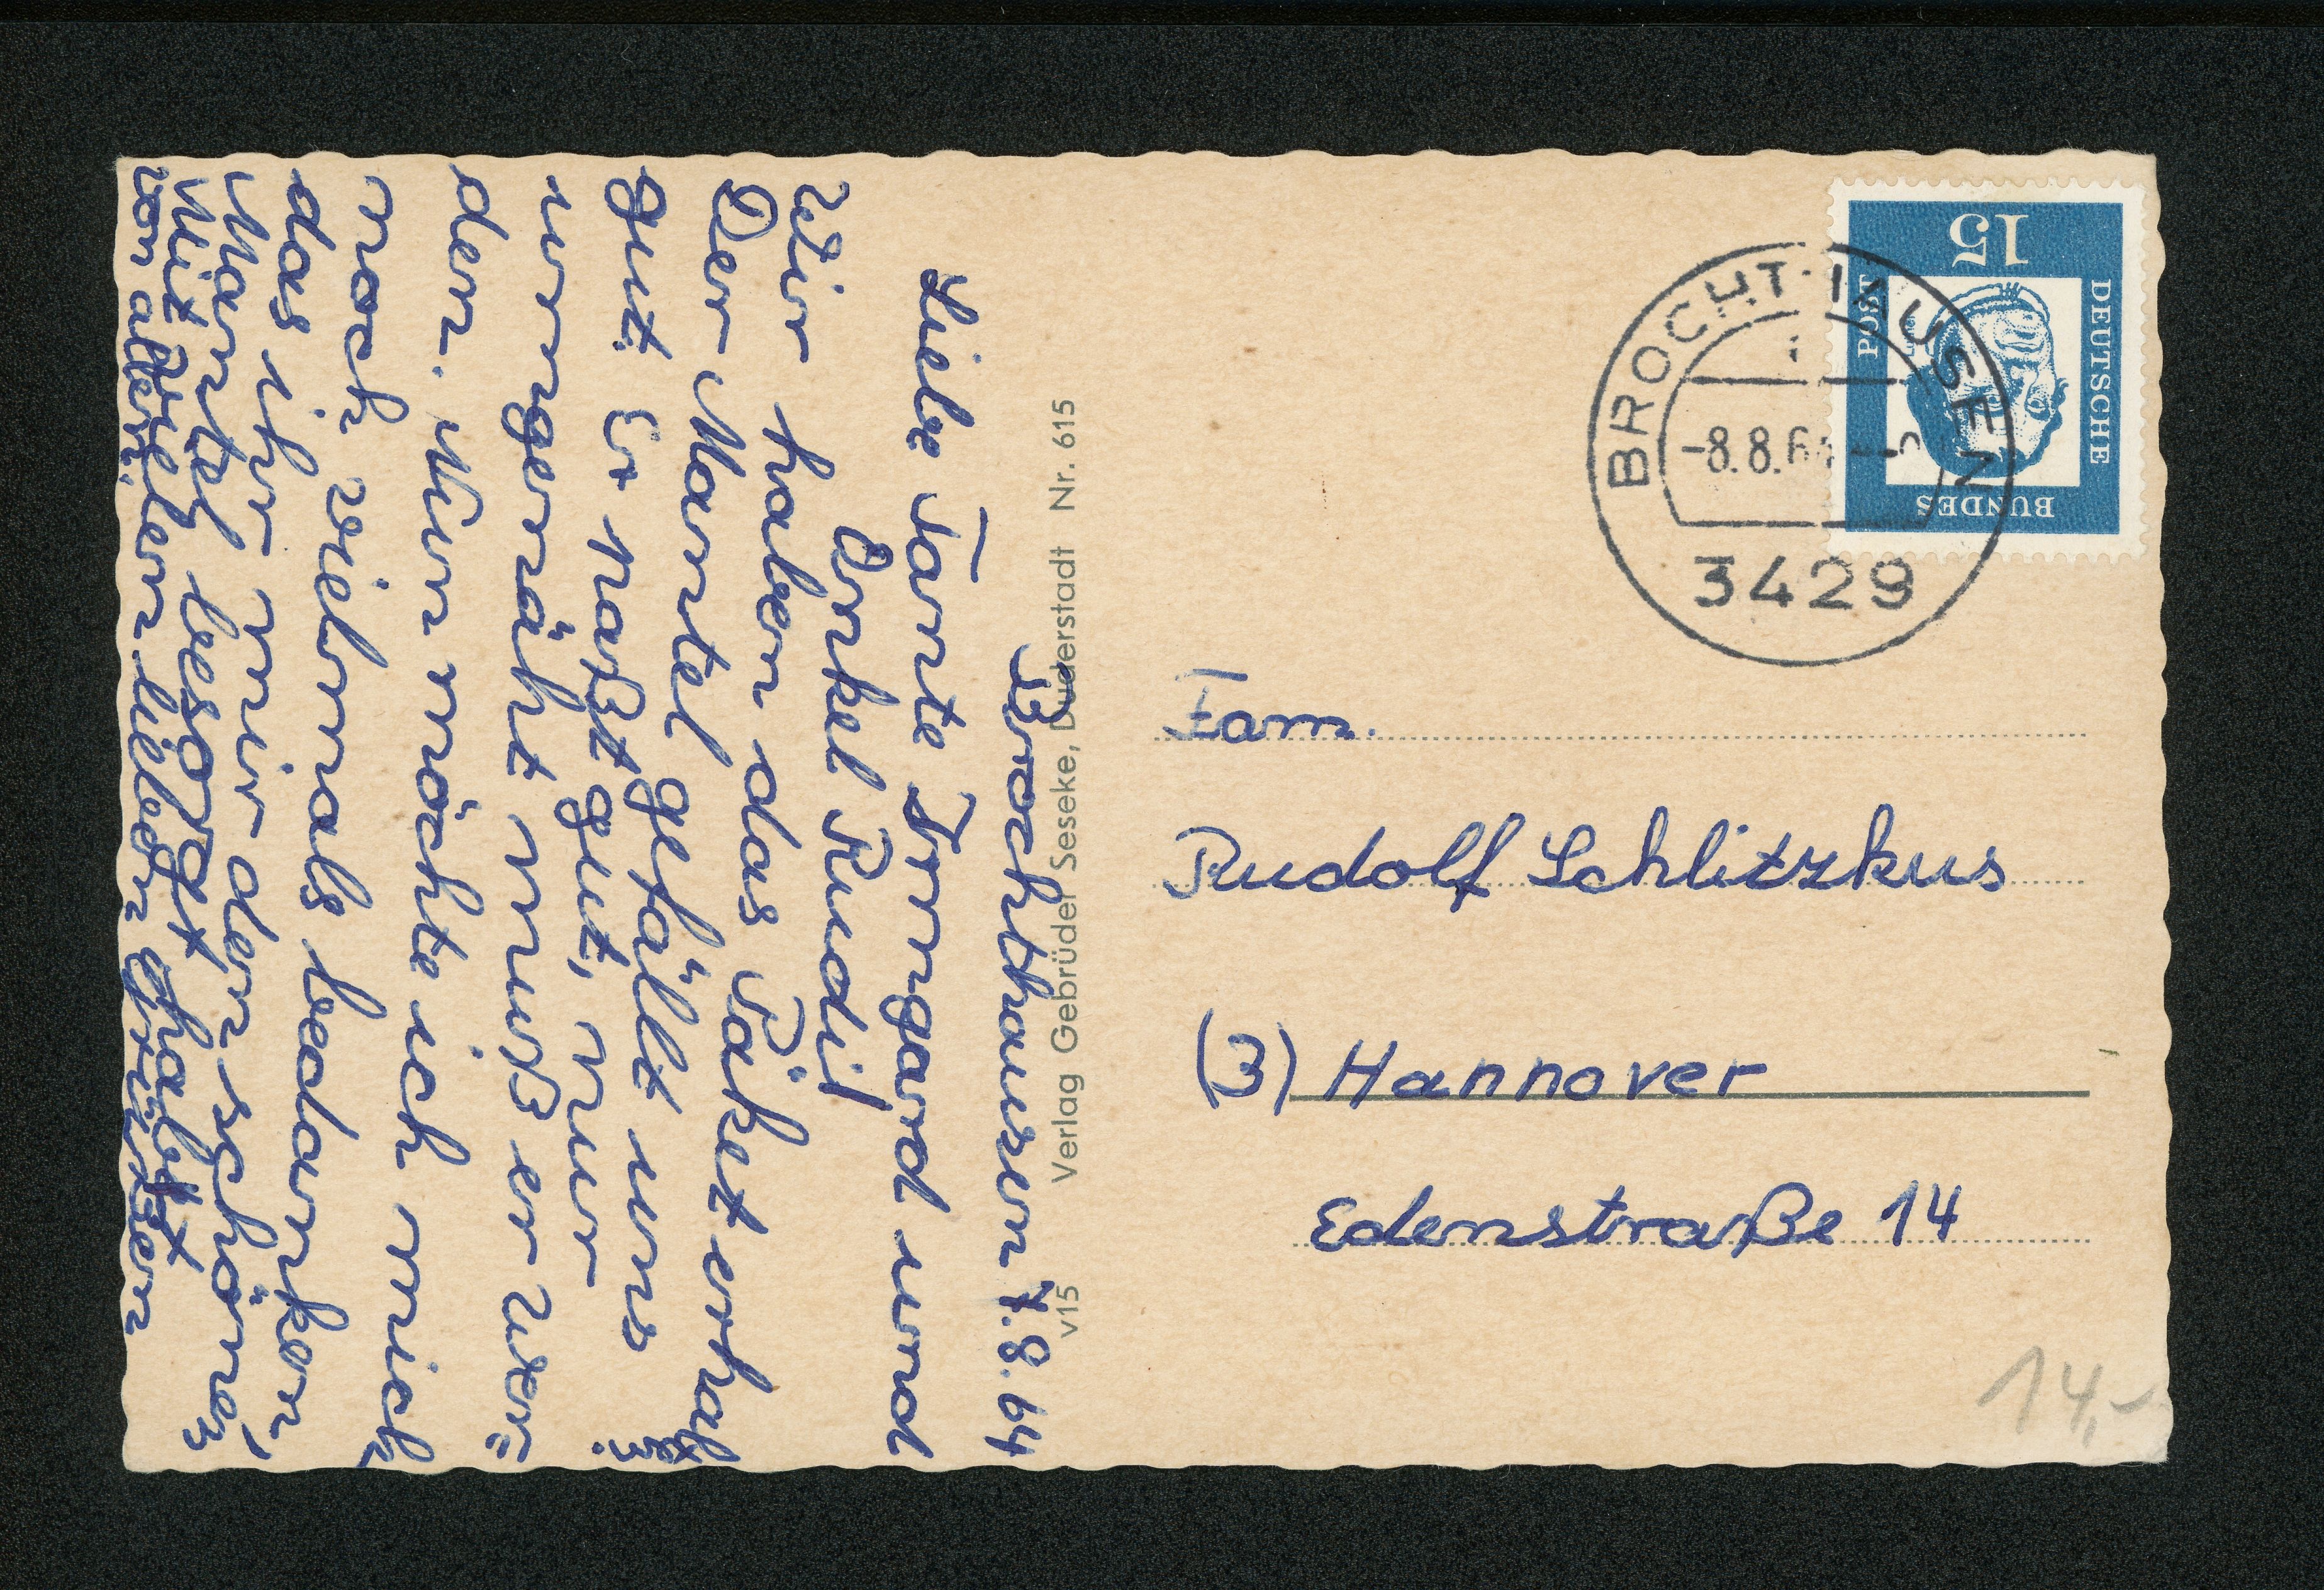 Brochthausen 7.8.64
Liebe Tante Irmgard und
Onkel Rudi!
Wir haben das Paket erhalten
Der Mantel gefällt uns
gut. Er paßt gut, nur
umgenäht muß er wer=
den. Nun möchte ich mich
noch vielmals bedanken,
das ihr mir den schönen
Mantel besorgt habt.
Mit vielen lieben Grüßen
von allen
v15 Verlag Gebrüder Seseke, Duderstadt Nr. 615
DEUTSCHE
BUNDES
POST
15
BROCHTHAUSEN
-8.8.64
3429
Fam.
Rudolf Schlitzkus
(3) Hannover
Edenstraße 14
14,-